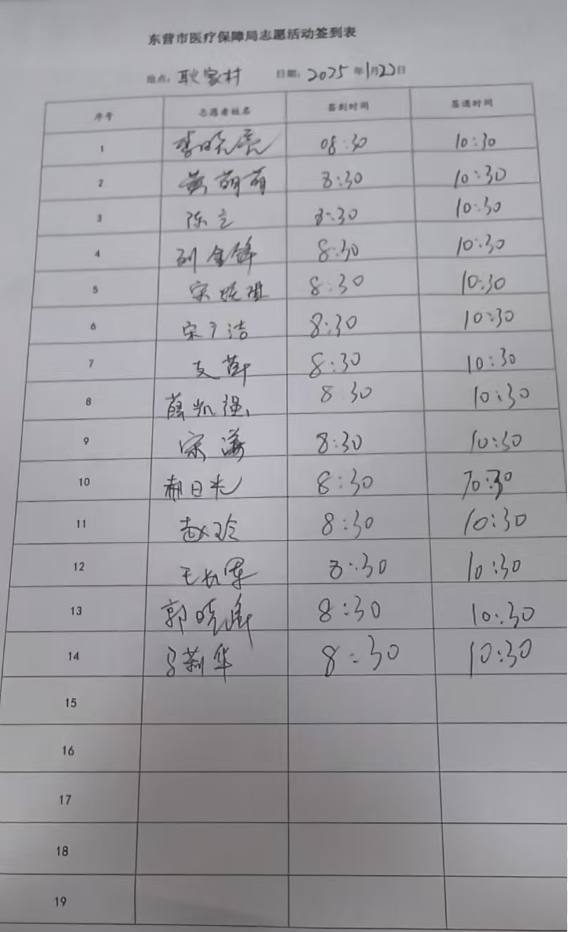 东营市医疗保障局志愿活动签到表
地点：耿家村 日期：2025年1月22日
序号 志愿者姓名 签到时间 签退时间
1 李晓亮 08:30 10:30
2 黄萌萌 8:30 10:30
3 陈立 8:30 10:30
4 刘金锋 8:30 10:30
5 宋晓琪 8:30 10:30
6 宋广洁 8:30 10:30
7 支 8:30 10:30
8 薛凯强 8:30 10:30
9 宋 8:30 10:30
10 郝日光 8:30 10:30
11 赵玲 8:30 10:30
12 王长军 8:30 10:30
13 郭晓峰 8:30 10:30
14 莉华 8:30 10:30
15
16
17
18
19